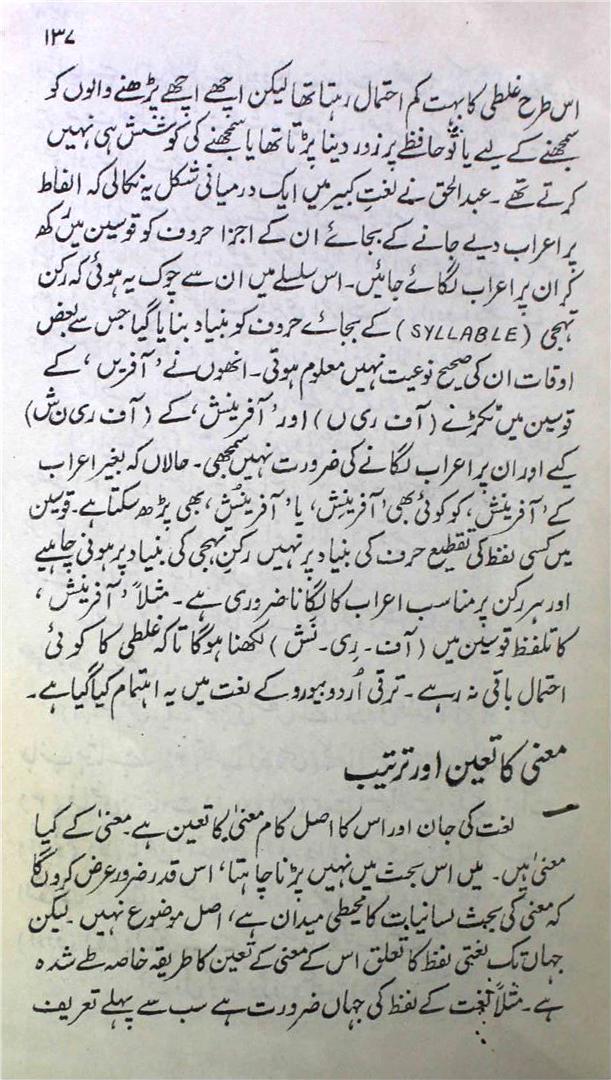 ۱۳۷
اس طرح غلطی کا بہت کم احتمال رہتا تھا لیکن اچھے اچھے پڑھنے والوں کو
سمجھنے کے لیے یا تو حافظے پر زور دینا پڑتا تھا یا سمجھنے کی کوشش ہی نہیں
کرتے تھے۔ عبدالحق نے لغتِ کبیر میں ایک درمیانی شکل یہ نکالی کہ الفاظ
پر اعراب دیے جانے کے بجائے ان کے اجزا حروف کو قوسین میں رکھ
کر ان پر اعراب لگائے جائیں۔ اس سلسلے میں ان سے چوک یہ ہوئی کہ رکن
تہجی (SYLLABLE) کے بجائے حروف کو بنیاد بنایا گیا جس سے بعض
اوقات ان کی صحیح نوعیت نہیں معلوم ہوتی۔ انھوں نے ’آفریں‘ کے
قوسین میں ٹکڑے (آف ری ں) اور ’آفرینش‘ کے (آف ری ن ش)
کیے اور ان پر اعراب لگانے کی ضرورت نہیں سمجھی۔ حالاں کہ بغیر اعراب
کے ’آفرینش‘ کو کوئی بھی ’آفرینِش‘ یا ’آفرینُش‘ بھی پڑھ سکتا ہے۔ قوسین
میں کسی لفظ کی تقطیع حرف کی بنیاد پر نہیں رکنِ تہجی کی بنیاد پر ہونی چاہیے
اور ہر رکن پر مناسب اعراب کا لگانا ضروری ہے۔ مثلاً ’آفرینش‘
کا تلفظ قوسین میں (آف۔ رِی۔ نَش) لکھنا ہوگا تاکہ غلطی کا کوئی
احتمال باقی نہ رہے۔ ترقی اُردو بیورو کے لغت میں یہ اہتمام کیا گیا ہے۔
معنی کا تعین اور ترتیب
لغت کی جان اور اس کا اصل کام معنیٰ کا تعین ہے۔ معنیٰ کے کیا
معنیٰ ہیں۔ میں اس بحث میں نہیں پڑنا چاہتا، اس قدر ضرور عرض کروں گا
کہ معنی کی بحث لسانیات کا محیطی میدان ہے، اصل موضوع نہیں۔ لیکن
جہاں تک لغتی لفظ کا تعلق اس کے معنی کے تعین کا طریقہ خاصہ طے شدہ
ہے۔ مثلاً لغت کے لفظ کی جہاں ضرورت ہے سب سے پہلے تعریف